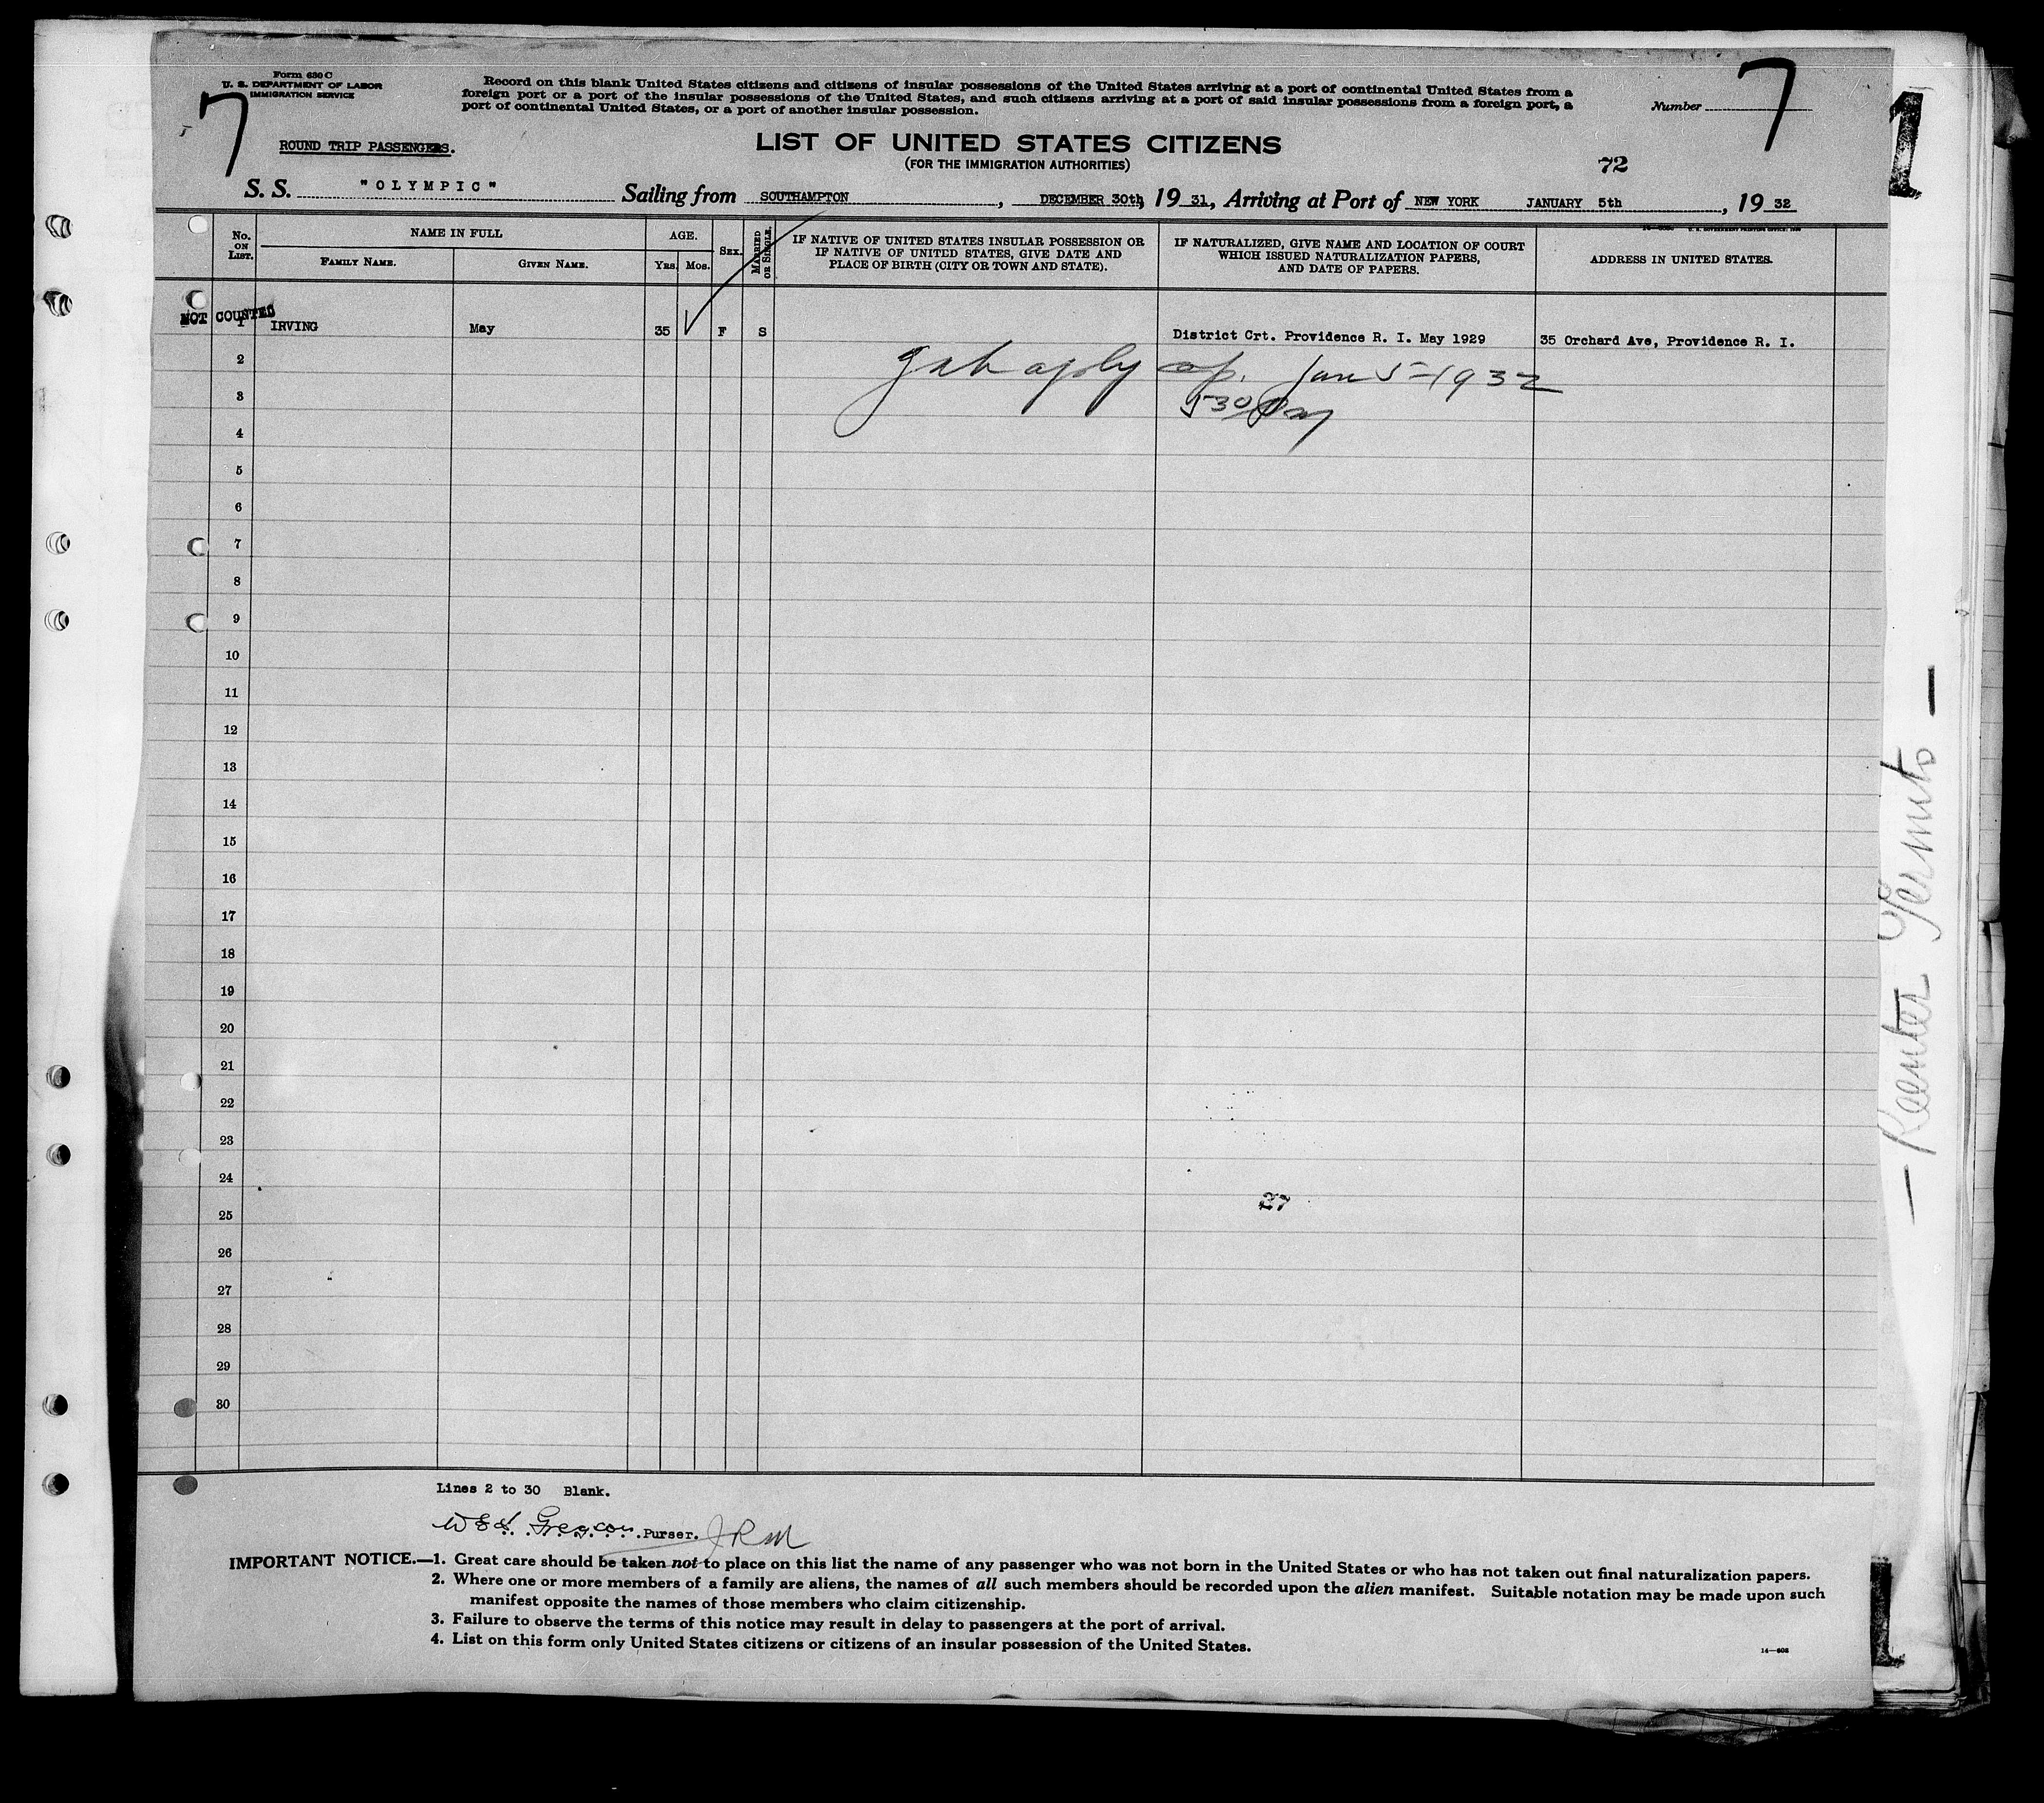 Form 630 C
U. S. DEPARTMENT OF LABOR
IMMIGRATION SERVICE
7
Record on this blank United States citizens and citizens of insular possessions of the United States arriving at a port of continental United States from a
foreign port or a port of the insular possessions of the United States, and such citizens arriving at a port of said insular possessions from a foreign port, a
port of continental United States, or a port of another insular possession.
Number
7
1
ROUND TRIP PASSENGERS.
LIST OF UNITED STATES CITIZENS
(FOR THE IMMIGRATION AUTHORITIES)
72
S. S. "OLYMPIC" Sailing from SOUTHAMPTON, DECEMBER 30th, 19 31, Arriving at Port of NEW YORK JANUARY 5th, 19 32
No. ON LIST.
NAME IN FULL
FAMILY NAME.
GIVEN NAME.
AGE.
YRS. MOS.
SEX.
MARRIED OR SINGLE.
IF NATIVE OF UNITED STATES INSULAR POSSESSION OR
IF NATIVE OF UNITED STATES, GIVE DATE AND
PLACE OF BIRTH (CITY OR TOWN AND STATE).
IF NATURALIZED, GIVE NAME AND LOCATION OF COURT
WHICH ISSUED NATURALIZATION PAPERS,
AND DATE OF PAPERS.
ADDRESS IN UNITED STATES.
NOT COUNTED
1 IRVING May 35 F S District Crt. Providence R. I. May 1929 35 Orchard Ave, Providence R. I.
2
Jan 5-1932
3
530
4
5
6
7
8
9
10
11
12
13
14
15
16
17
18
19
20
21
22
23
24
27
25
26
27
28
29
30
Reenter Permits
Lines 2 to 30 Blank.
Purser. JRM
IMPORTANT NOTICE.—1. Great care should be taken not to place on this list the name of any passenger who was not born in the United States or who has not taken out final naturalization papers.
2. Where one or more members of a family are aliens, the names of all such members should be recorded upon the alien manifest. Suitable notation may be made upon such
manifest opposite the names of those members who claim citizenship.
3. Failure to observe the terms of this notice may result in delay to passengers at the port of arrival.
4. List on this form only United States citizens or citizens of an insular possession of the United States.
14—606
1